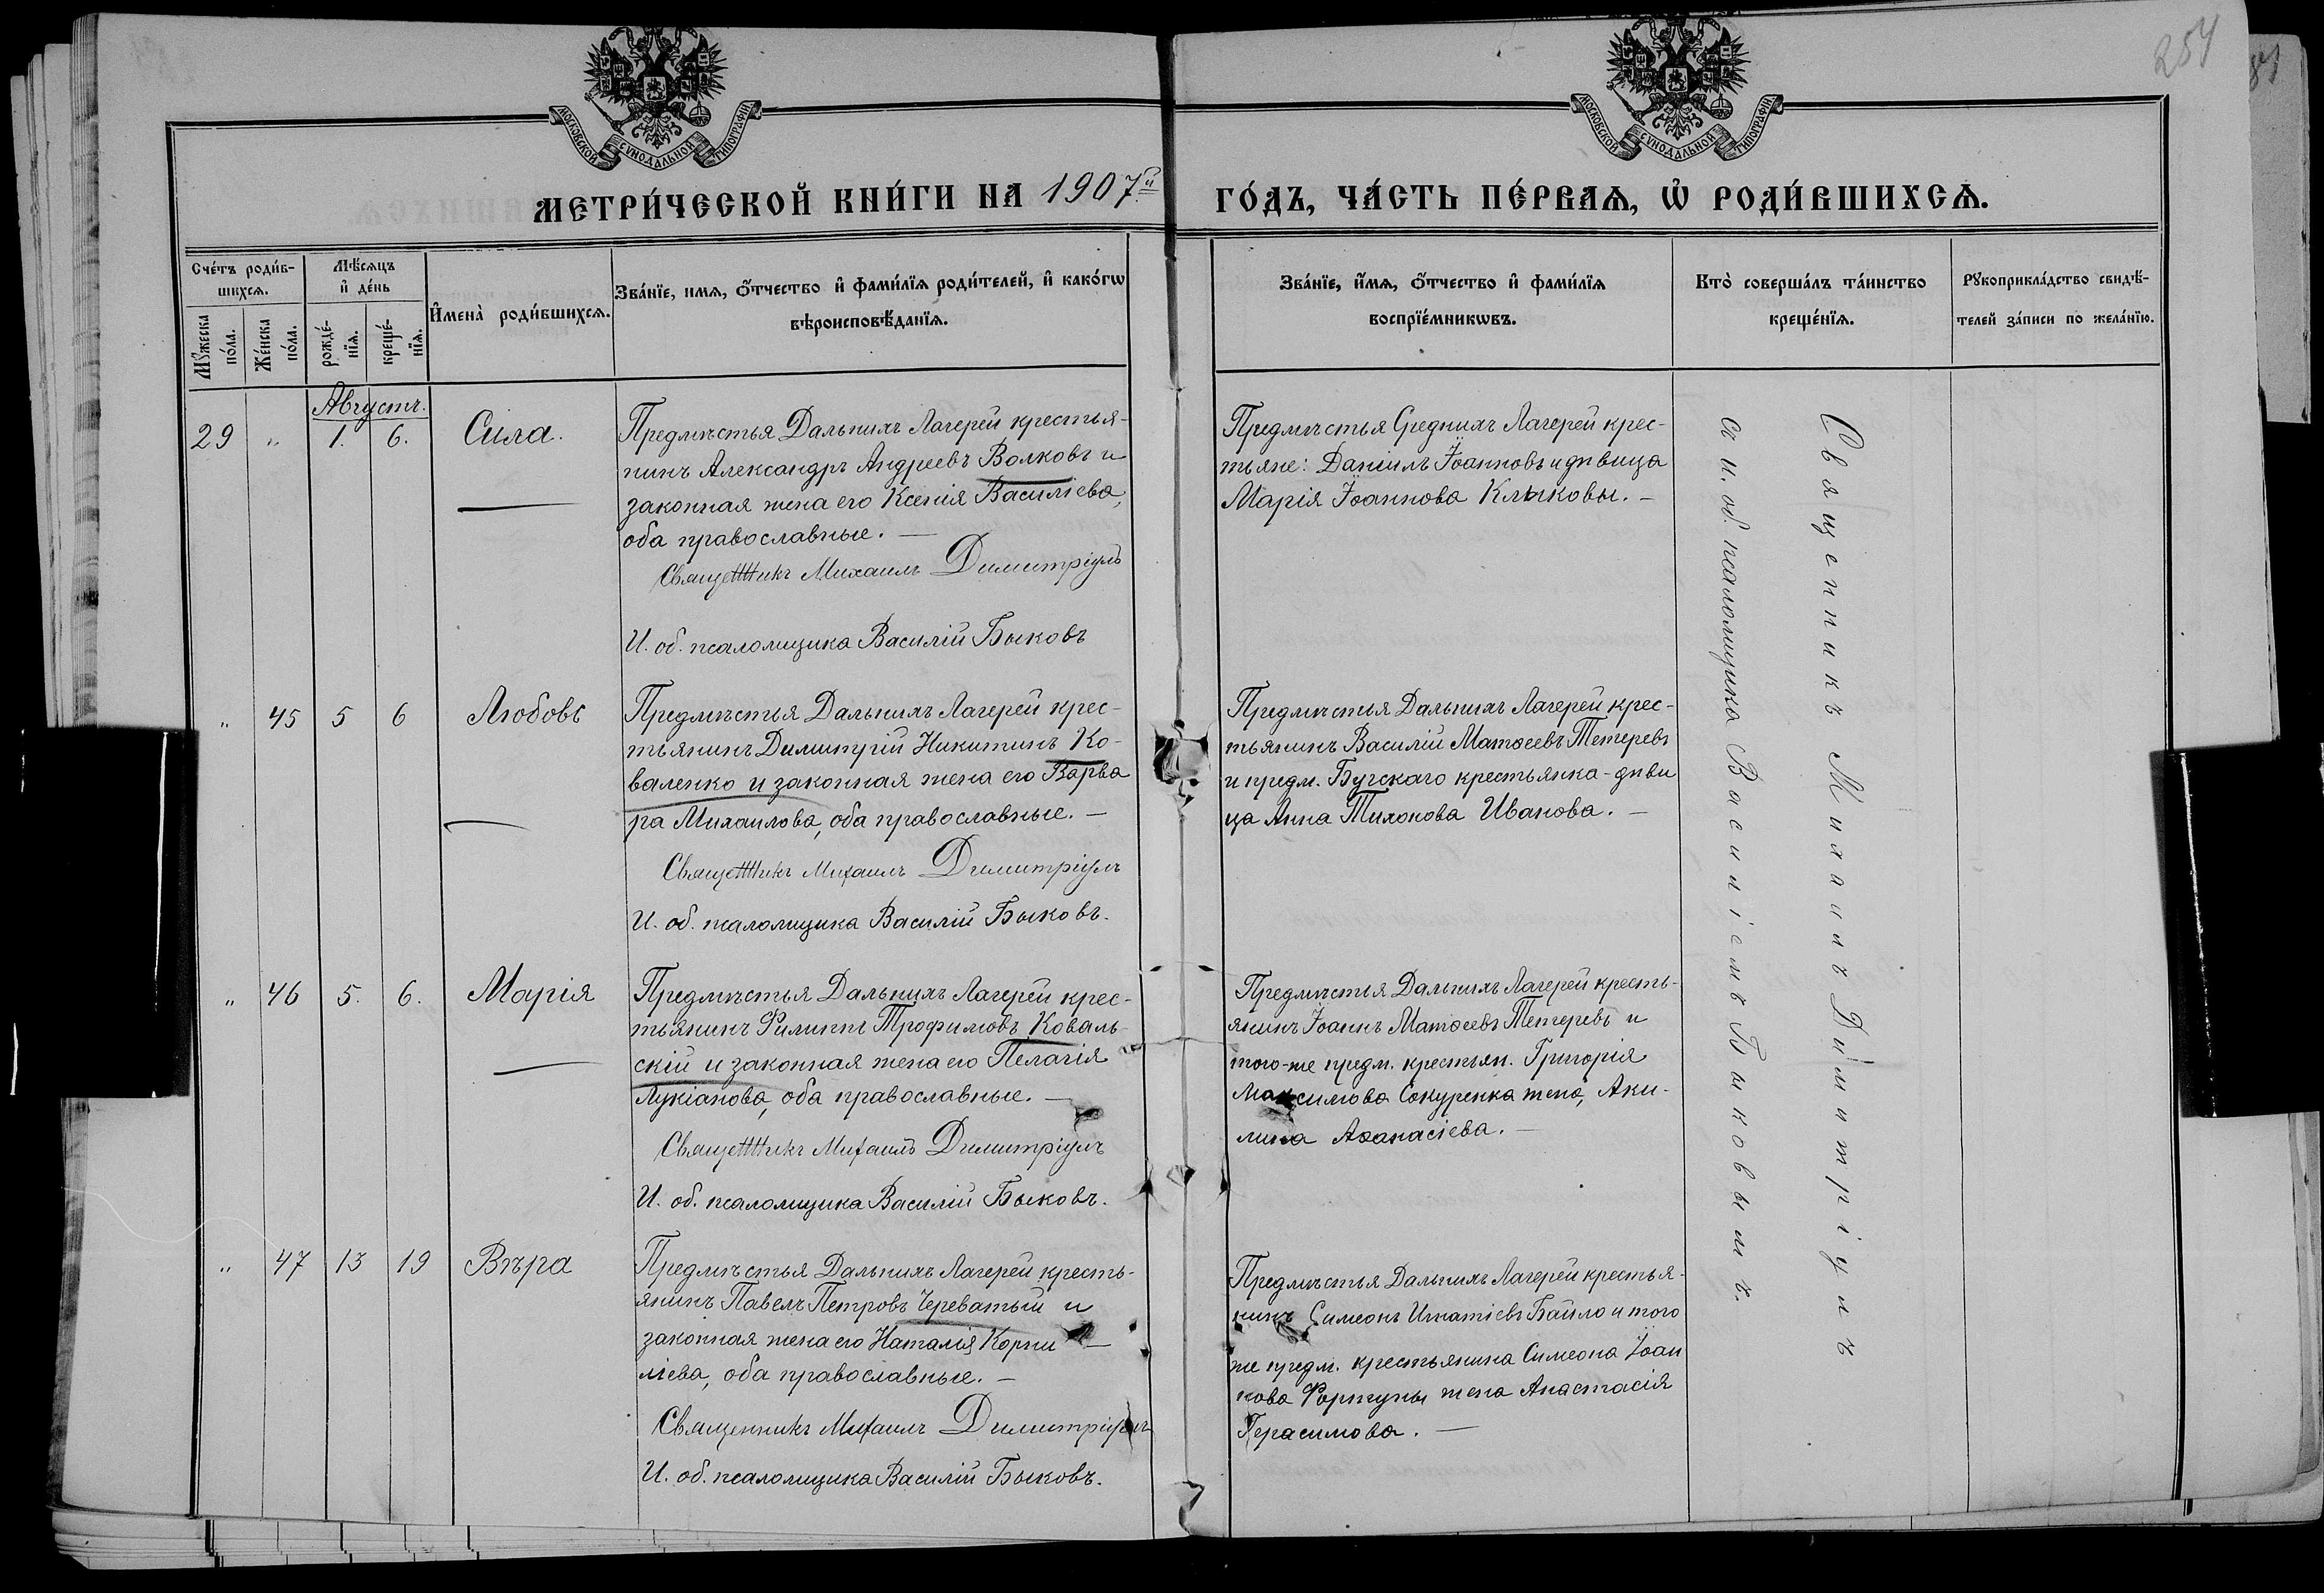 254
МОСКОВСКОЙ СѴНОДАЛЬНОЙ ТИПОГРАФІИ
МОСКОВСКОЙ СѴНОДАЛЬНОЙ ТИПОГРАФІИ
МЕТРИ́ЧЕСКОЙ КНИ́ГИ НА 1907й ГО́ДЪ, ЧА́СТЬ ПЕ́РВАѦ, Ѡ҆ РОДИ́ВШИХСѦ.
Сче́тъ роди́в-
шихсѧ.
Мꙋ́жеска
по́ла.
Же́нска
по́ла.
Мѣ́сѧцъ
и҆ де́нь
рожде́-
нїѧ.
креще́-
нїѧ.
И҆мена̀ роди́вшихсѧ.
Зва́нїе, имѧ, ѻ҆́тчество и҆ фами́лїѧ роди́телей, и҆ како́гѡ
вѣроисповѣ́данїѧ.
Зва́нїе, и҆́мѧ, ѻ҆́тчество и҆ фами́лїѧ
воспрїе́мникѡвъ.
Кто̀ соверша́лъ та́инство
креще́нїѧ.
Рꙋкоприкла́дство свидѣ́-
телей за́писи по жела́нїю.
Августъ.
29 „ 1. 6. Сила.
Предмѣстья Дальнихъ Лагерей крестья-
нинъ Александръ Андреевъ Волковъ и
законная жена его Ксенія Василіева,
оба православные. —
Священникъ Михаилъ Димитріулъ
И. об. псаломщика Василій Быковъ
Предмѣстья Среднихъ Лагерей крес-
тьяне: Даніилъ Іоанновъ и дѣвица
Марія Іоаннова Клыковы. —
„ 45 5 6 Любовь
Предмѣстья Дальнихъ Лагерей крес-
тьянинъ Димитрій Никитинъ Ко-
валенко и законная жена его Варва
ра Михаилова, оба православные. —
Священникъ Михаилъ Димитріулъ
И. об. псаломщика Василій Быковъ.
Предмѣстья Дальнихъ Лагерей крес-
тьянинъ Василій Матѳеевъ Тетеревъ
и предм. Бугскаго крестьянка-дѣви
ца Анна Тихонова Иванова. —
„ 46 5. 6. Марія
Предмѣстья Дальнихъ Лагерей крес-
тьянинъ Филиппъ Трофимовъ Коваль-
скій и законная жена его Пелагія
Лукіанова, оба православные. —
Священникъ Михаилъ Димитріулъ
И. об. псаломщика Василій Быковъ.
Предмѣстья Дальнихъ Лагерей кресть-
янинъ Іоаннъ Матѳеевъ Тетеревъ и
того-же предм. крестьян. Григорія
Максимова Сокуренка жена, Аки-
лина Аѳанасіева. —
„ 47 13 19 Вѣра
Предмѣстья Дальнихъ Лагерей кресть-
янинъ Павелъ Петровъ Череватый и
законная жена его Наталія Корни —
ліева, оба православные. —
Священникъ Михаилъ Димитріулъ
И. об. псаломщика Василій Быковъ.
Предмѣстья Дальнихъ Лагерей крестья-
нинъ Симеонъ Игнатіевъ Байло и того
же предм. крестьянина Симеона Іоан
нова Фортуны жена Анастасія
Герасимова. —
Священникъ Михаилъ Димитріулъ
съ и. об. псаломщика Василіемъ Быковымъ.